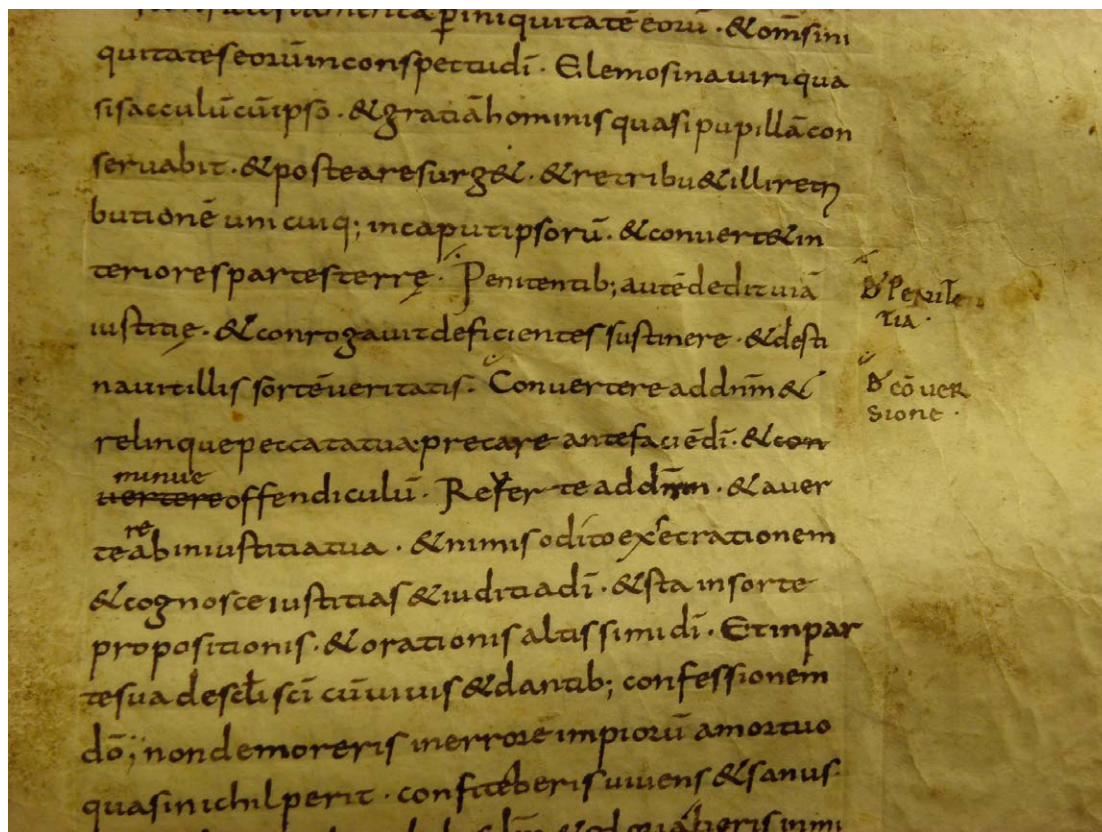 iniquitatē eorū · & om̄s ini
quitates eorū in conspectu dī · Elemosina viri qua
si sacculū cū ipso · & gratiā hominis quasi pupillā con
servabit · & postea resurg& · & retribu& illi retri
butionē uni cuiq; in caput ipsorū · & convert& in
teriores partes terrę · Penitentib; autē dedit viā
iustitię · & conrogavit deficientes sustinere · & desti
navit illis sortē veritatis · Convertere ad dn̄m &
relinque peccata tua precare ante faciē dī · & con
minue
vertere offendiculū · Revertere ad dn̄m · & aver
tere ab iniustitia tua · & nimis odito execrationem
& cognosce iustitias & iuditia dī · & sta in sorte
propositionis · & orationis altissimi dī · Et in par
te sua desclī scī cū vivis & dantib; confessionem
dō; non demoreris in errore impiorū a mortuo
quasi nichil perit · confiteberis vivens & sanus
đ penite
tia ·
đ cōver
sione ·